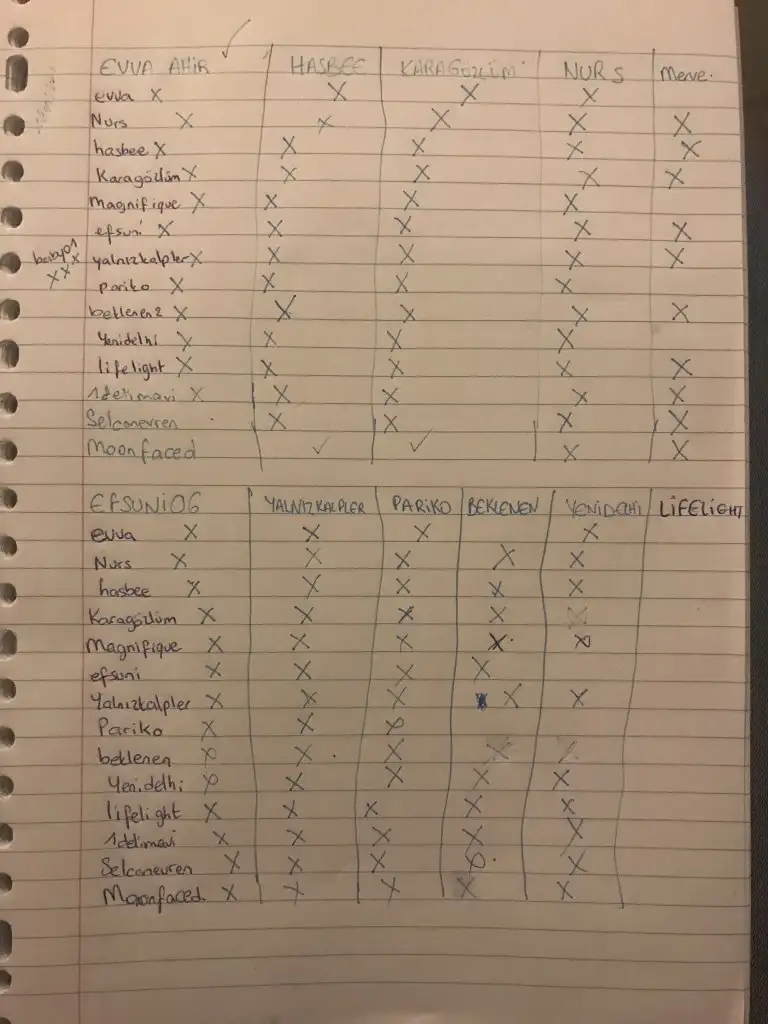 EVVA AHIR ✓ HASBEE KARAGÖZLÜM NURS Merve.
evva X X X X
Nurs X X X X X
hasbee X X X X X
Karagözlüm X X X X X
Magnifique X X X X
efsuni X X X X X
yalnızkalpler X X X X X
XXX
pariko X X X X
beklenen2 X X X X X
Yenidelhi X X X X
lifelight X X X X X
1delimavi X X X X X
Selconevren X X X X
Moonfaced ✓ ✓ X X
EFSUNİ06 YALNIZKALPLER PARİKO BEKLENEN YENİDELHİ LİFELİGHT
evva X X X X
Nurs X X X X X
hasbee X X X X X
Karagözlüm X X X X X
Magnifique X X X X X
efsuni X X X X
Yalnızkalpler X X X X X
Pariko X X X
beklenen X X X X X
Yenidelhi X X X X X
lifelight X X X X X
1delimavi X X X X X
Selconevren X X X X X
Moonfaced. X X X X X